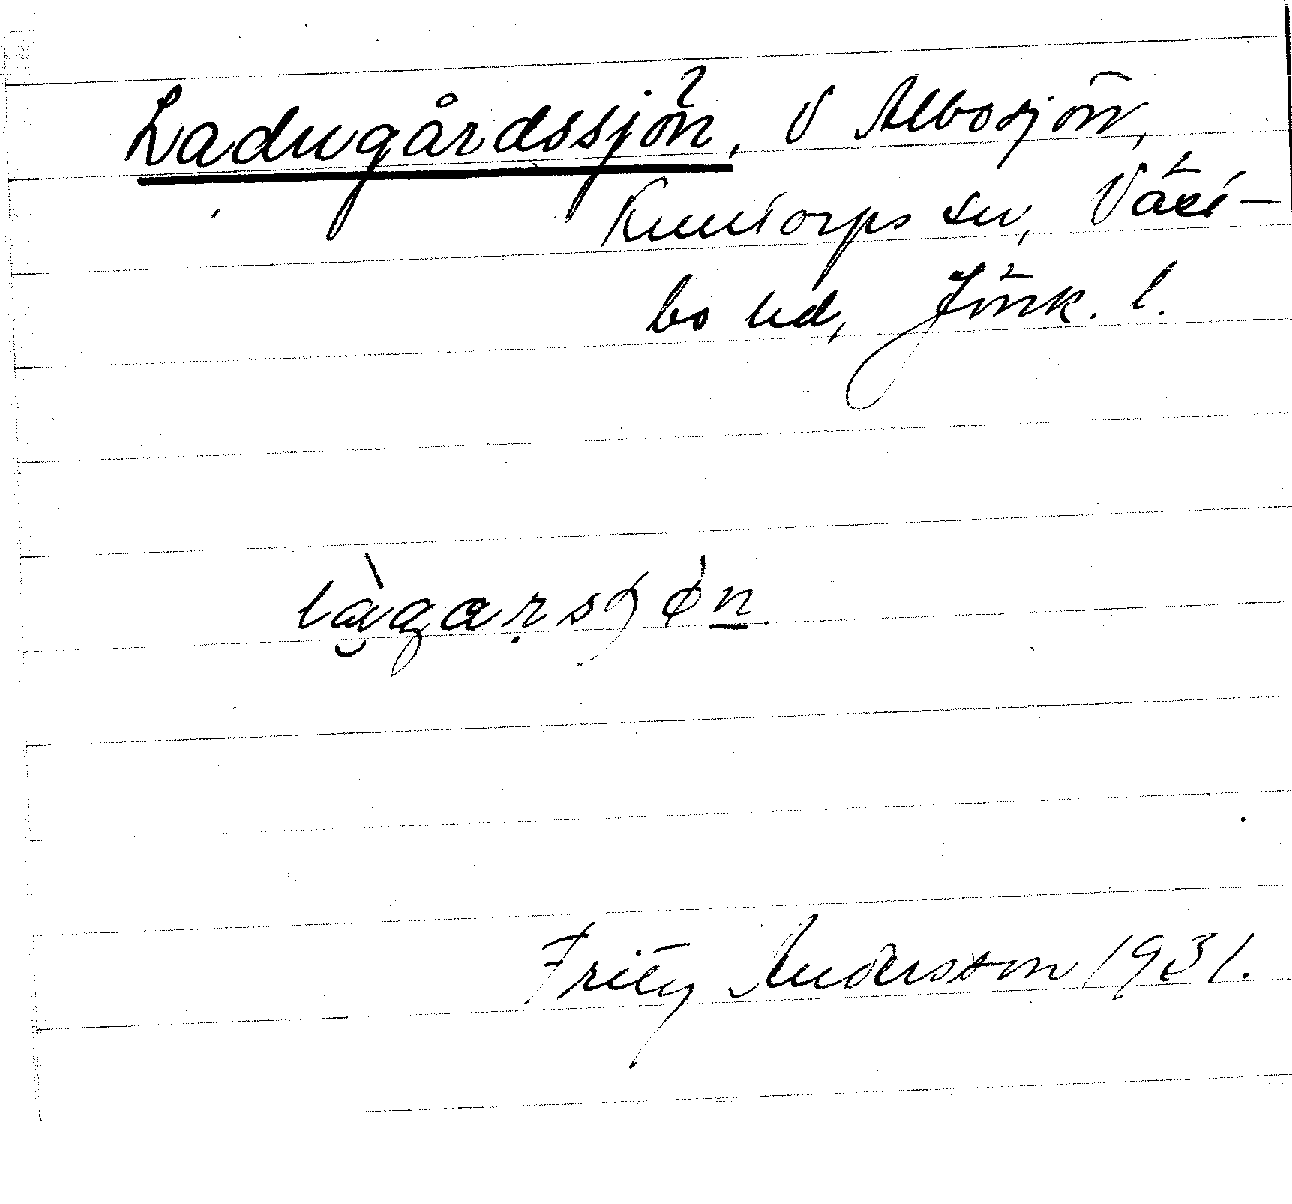 Ladugårdssjön, V Albosjön,
Kulltorps sn, Väst-
bo hd, Jönk. l.
lågarsjøn
Fritz Andersson 1931.